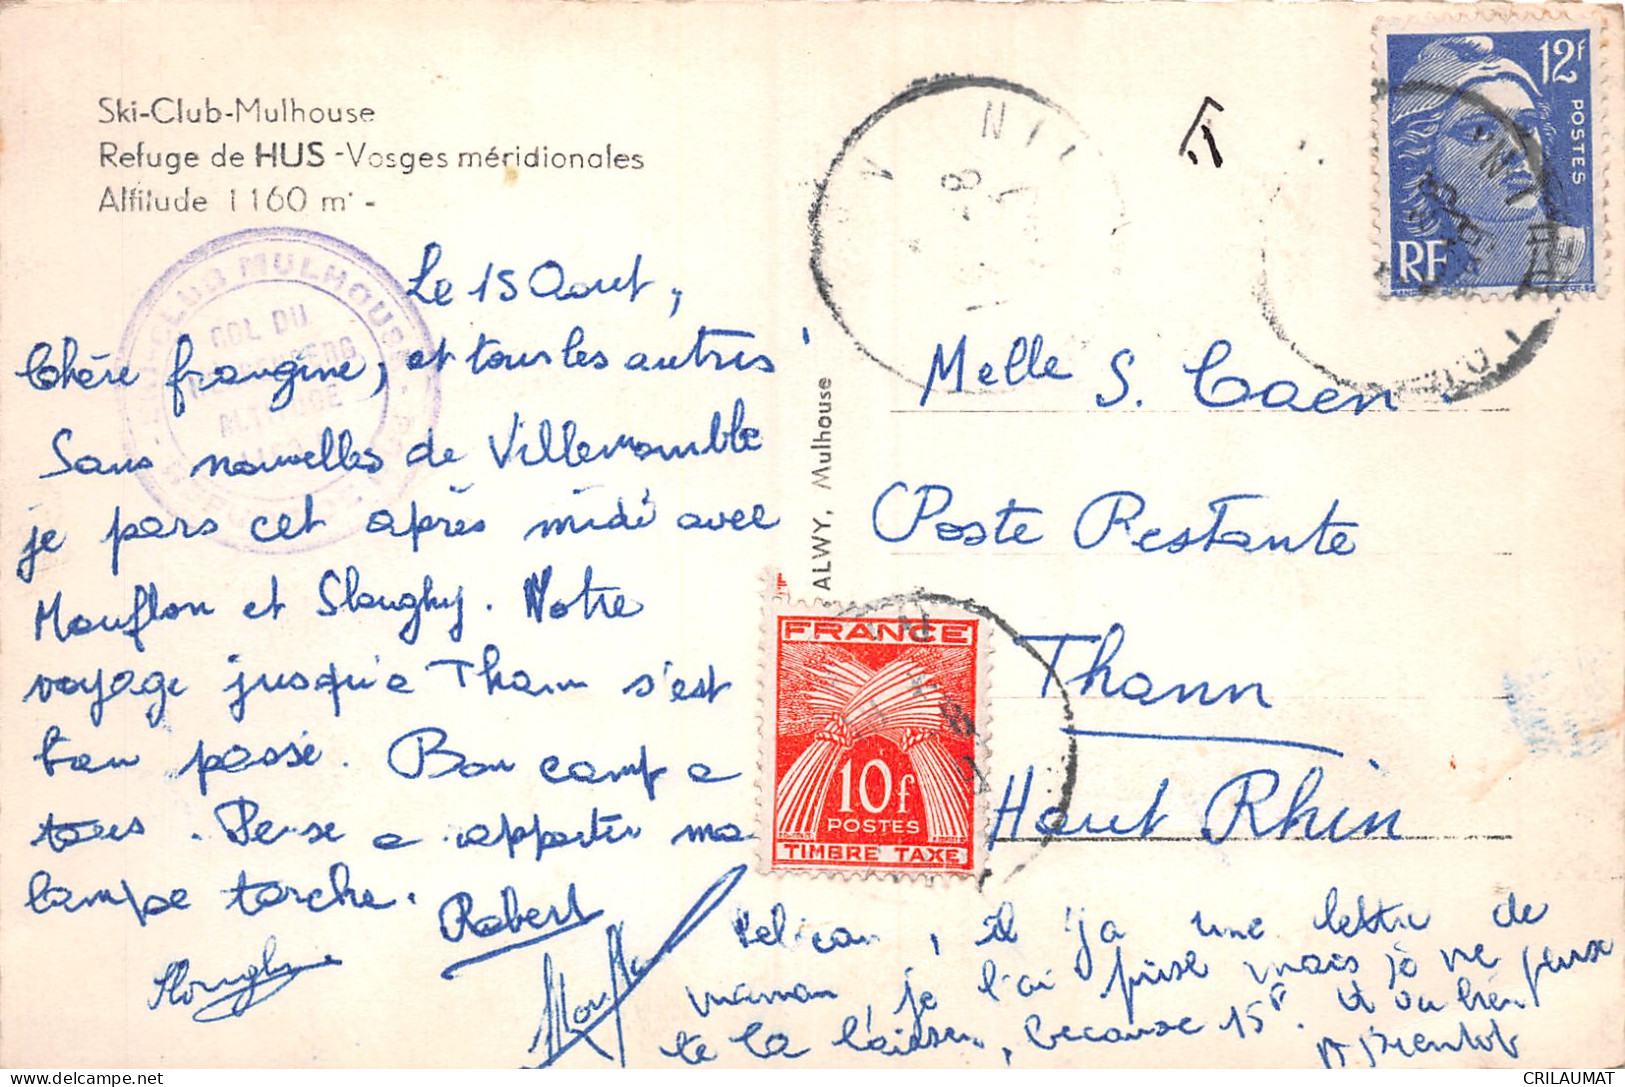 Ski-Club-Mulhouse
Refuge de HUS -Vosges méridionales
Altitude 1160 m -
SKI-CLUB MULHOUSE
COL DU
ALTITUDE
Le 15 Aout,
Chère frangine, et tous les autres !
Sans nouvelles de Villemomble
je pars cet après midi avec
Mouflon et Sloughy. Notre
voyage jusqu'a Thann s'est
bien passé. Bon camp a
tous. Pense a apporter ma
lampe torche.
Robert
Sloughy
Mouflon
Pelican, il y a une lettre de
maman, je l'ai prise mais je ne peux
te la laisser, because 15F. et ou bien
A bientot
ALWY, Mulhouse
12F
POSTES
RF
Melle S. Caen
Poste Restante
Thann
Haut Rhin
T
FRANCE
10f
POSTES
TIMBRE TAXE
CRILAUMAT